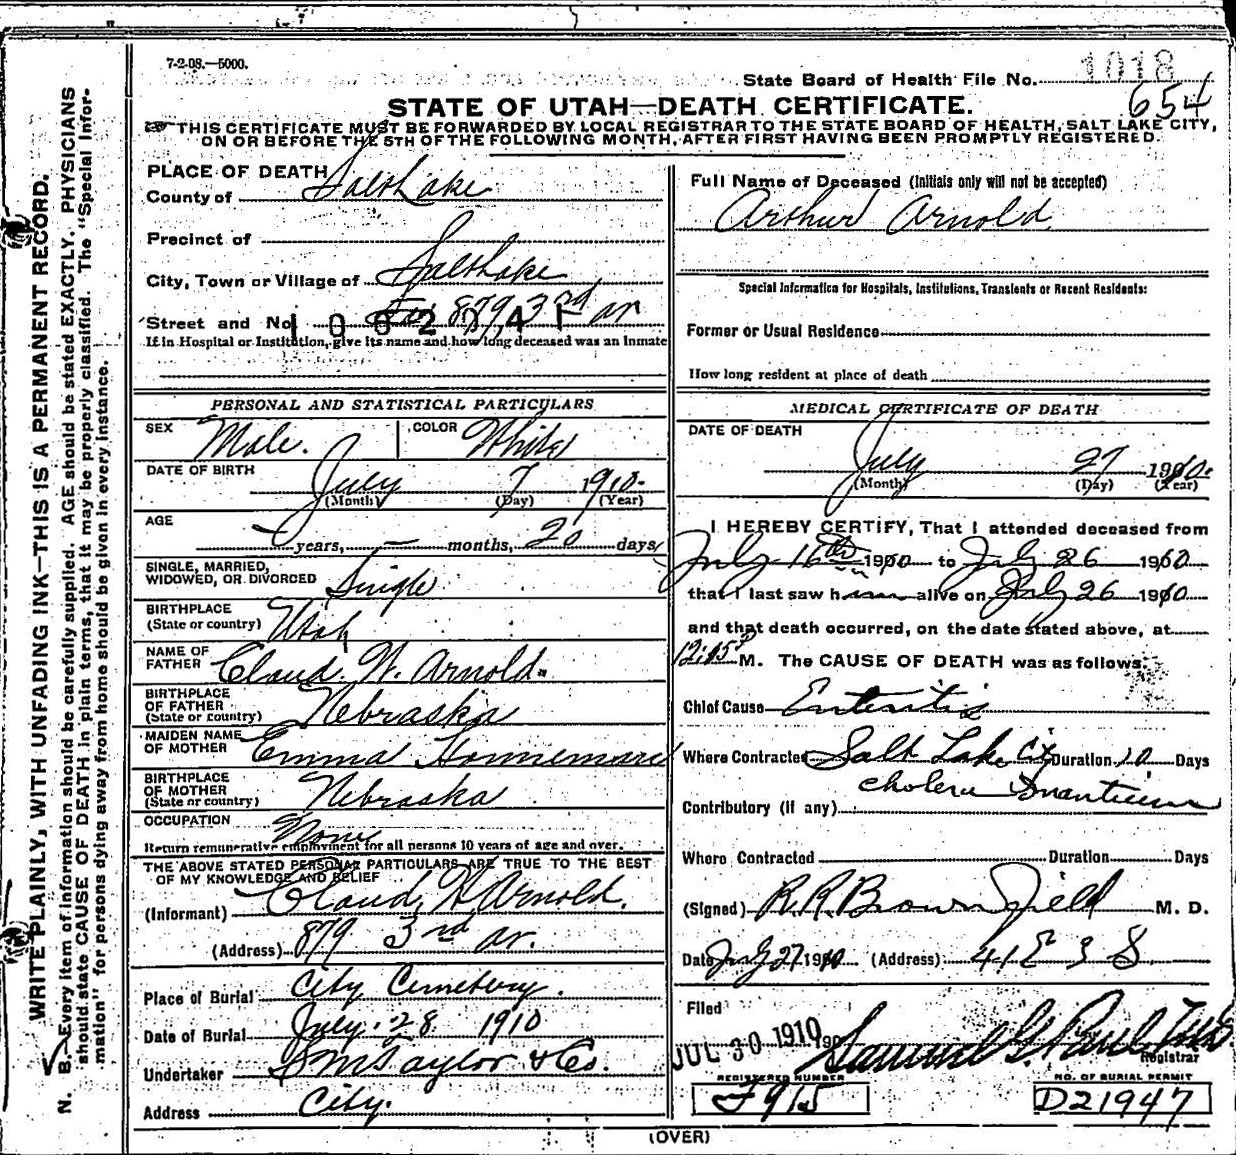 7-2-08.—5000.
State Board of Health File No. 1018
654
STATE OF UTAH—DEATH CERTIFICATE.
THIS CERTIFICATE MUST BE FORWARDED BY LOCAL REGISTRAR TO THE STATE BOARD OF HEALTH, SALT LAKE CITY,
ON OR BEFORE THE 5TH OF THE FOLLOWING MONTH, AFTER FIRST HAVING BEEN PROMPTLY REGISTERED.
WRITE PLAINLY, WITH UNFADING INK—THIS IS A PERMANENT RECORD.
N. B.—Every item of information should be carefully supplied. AGE should be stated EXACTLY. PHYSICIANS
should state CAUSE OF DEATH in plain terms, that it may be properly classified. The "Special Infor-
mation" for persons dying away from home should be given in every instance.
PLACE OF DEATH
County of Salt Lake
Precinct of
City, Town or Village of Salt Lake
Street and No. 879, 3rd av
If in Hospital or Institution, give its name and how long deceased was an inmate
PERSONAL AND STATISTICAL PARTICULARS
SEX Male. COLOR White
DATE OF BIRTH July 7 1910.
(Month) (Day) (Year)
AGE — years, — months, 20 days
SINGLE, MARRIED,
WIDOWED, OR DIVORCED Single
BIRTHPLACE
(State or country) Utah
NAME OF
FATHER Claud. W. Arnold.
BIRTHPLACE
OF FATHER
(State or country) Nebraska
MAIDEN NAME
OF MOTHER Emma
BIRTHPLACE
OF MOTHER
(State or country) Nebraska
OCCUPATION None
Return remunerative employment for all persons 10 years of age and over.
THE ABOVE STATED PERSONAL PARTICULARS ARE TRUE TO THE BEST
OF MY KNOWLEDGE AND BELIEF
(Informant) Claud. W Arnold.
(Address) 879 3rd av.
Place of Burial City Cemetery.
Date of Burial July. 28 1910
Undertaker S M Taylor & Co.
Address City.
Full Name of Deceased (Initials only will not be accepted)
Arthur Arnold
Special Information for Hospitals, Institutions, Transients or Recent Residents:
Former or Usual Residence
How long resident at place of death
MEDICAL CERTIFICATE OF DEATH
DATE OF DEATH
July 27 1910.
(Month) (Day) (Year)
I HEREBY CERTIFY, That I attended deceased from
July 16th 1910 to July 26 1910
that I last saw him alive on July 26 1910
and that death occurred, on the date stated above, at
M. The CAUSE OF DEATH was as follows:
Chief Cause Enteritis
Where Contracted Salt Lake City Duration 10 Days
cholera Infantum
Contributory (if any)
Where Contracted Duration Days
(Signed) R. R. Brownfield M. D.
Date July 27 1910 (Address) 41 E 3 S.
Filed
JUL 30 1910 Samuel G Paul
Registrar
REGISTERED NUMBER
F915
NO. OF BURIAL PERMIT
D21947
(OVER)